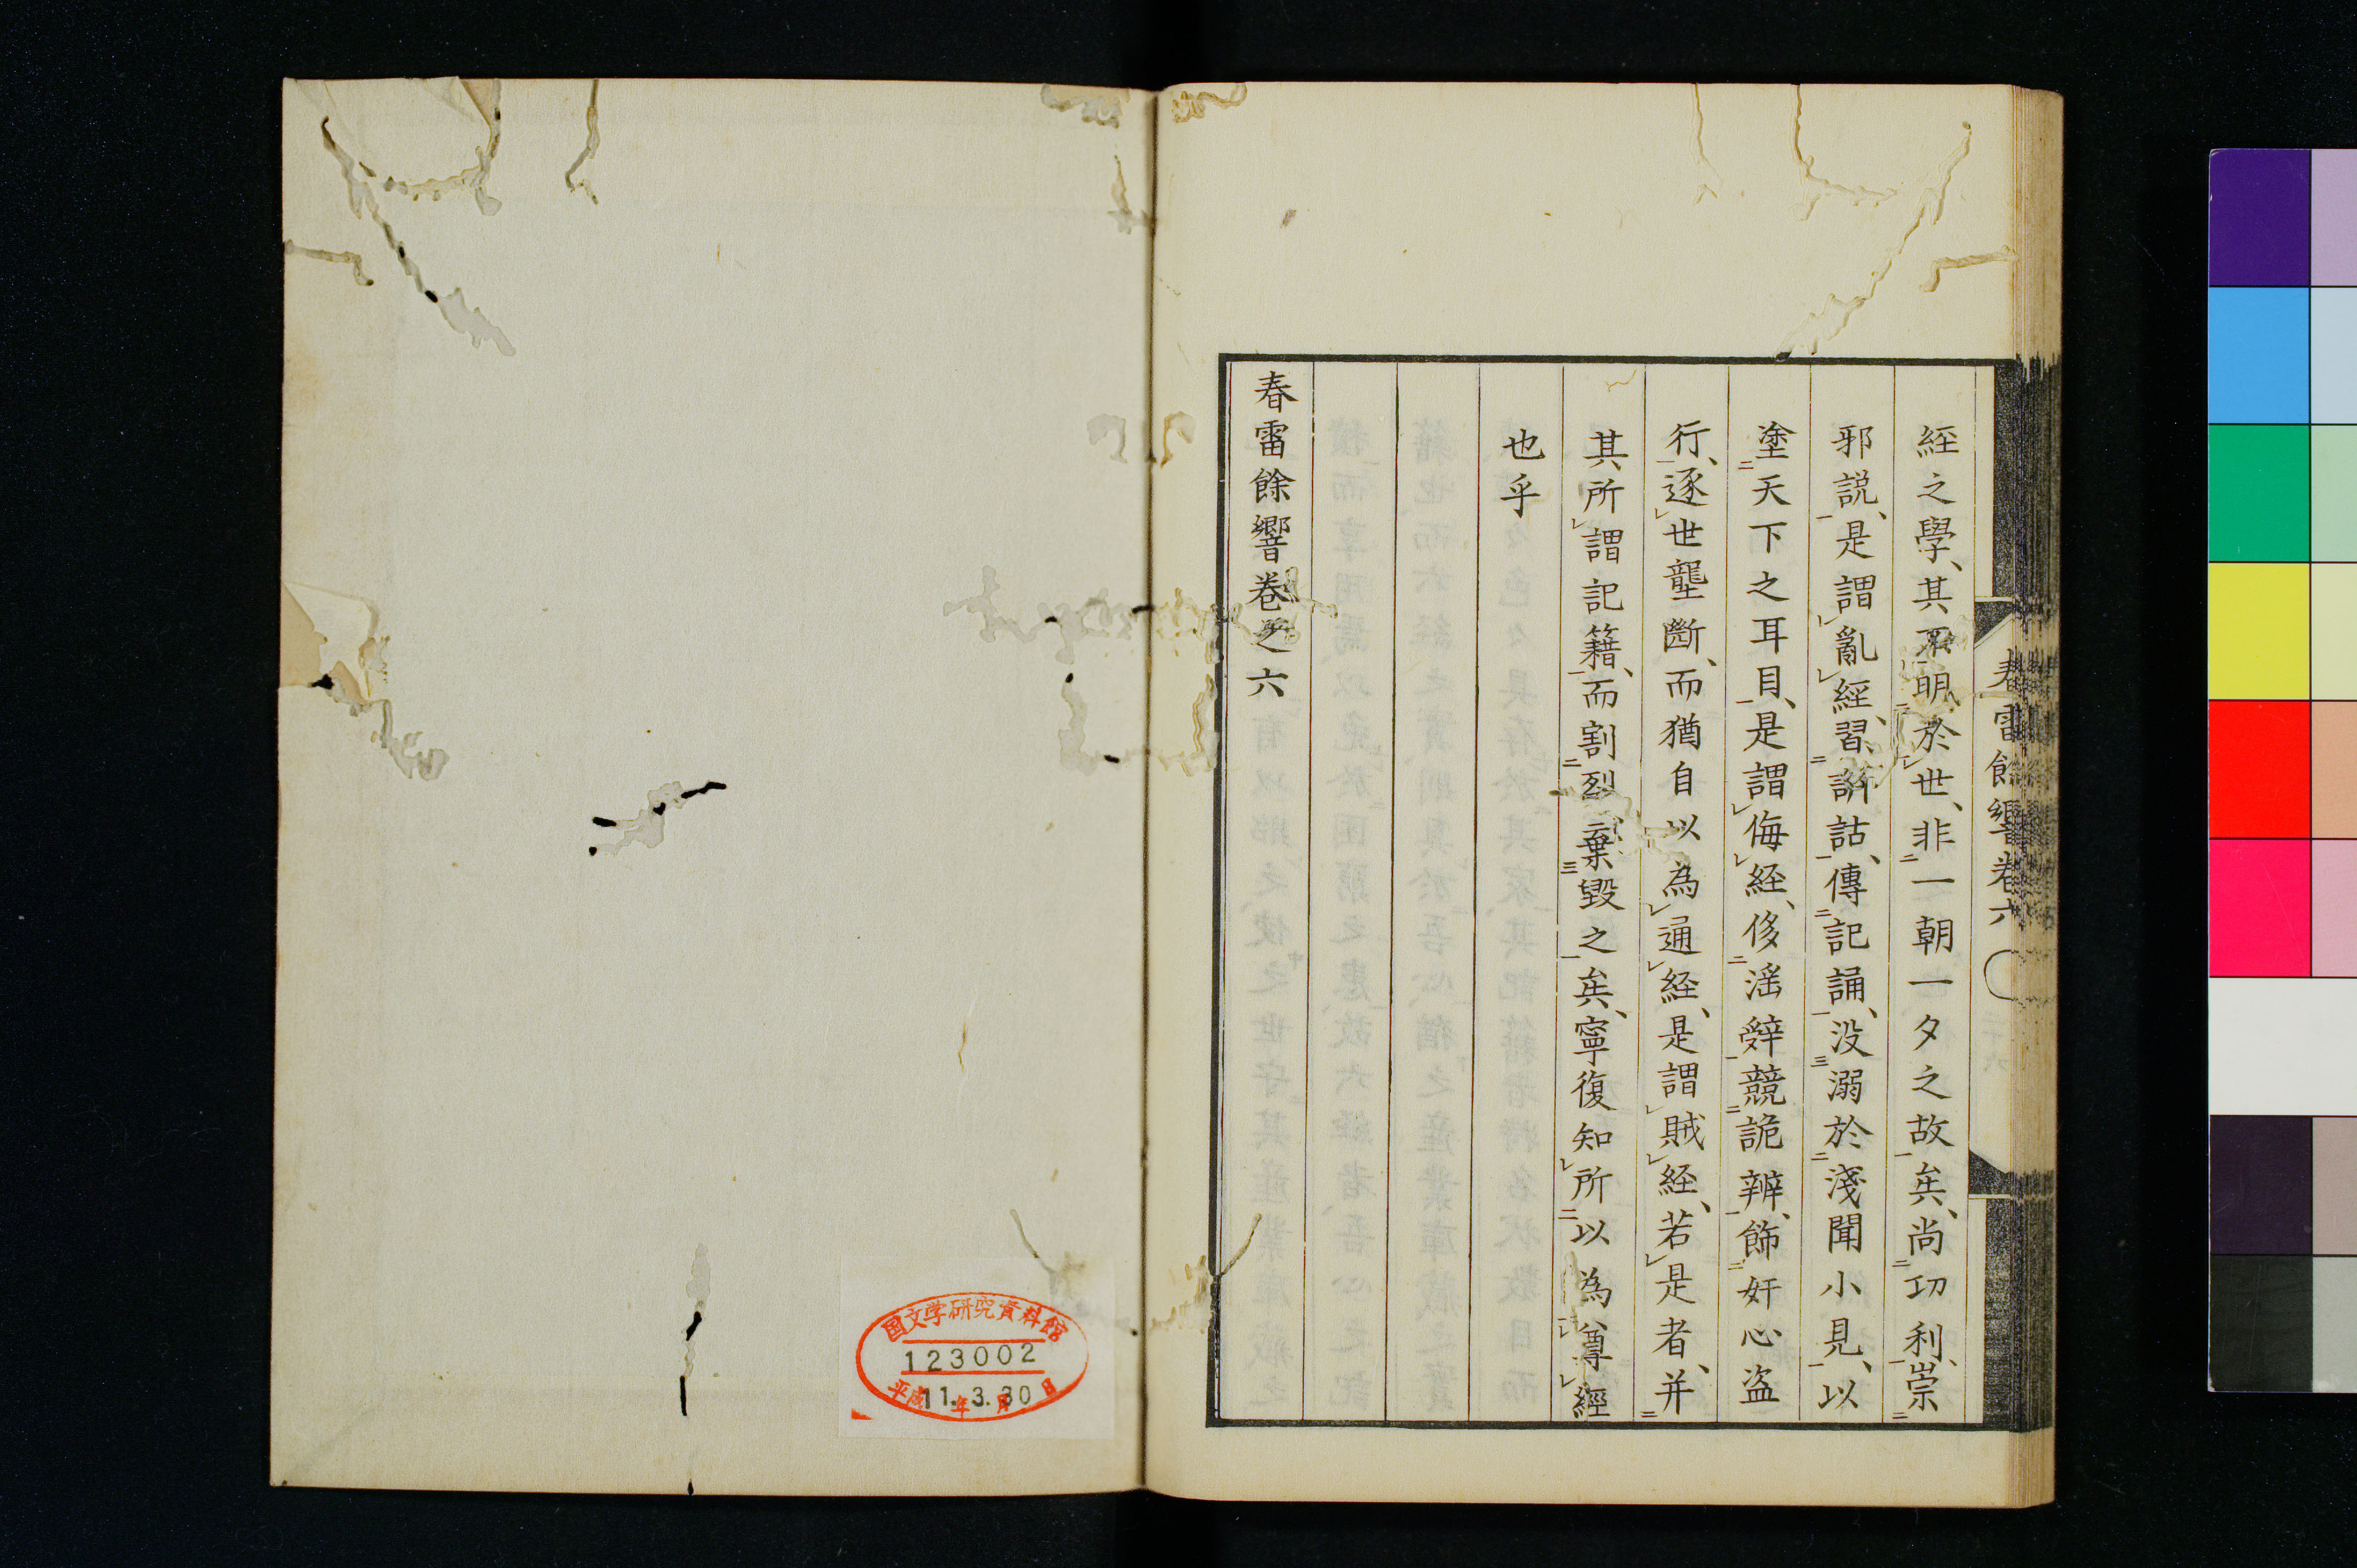 経之學、其不明於世、非一朝一夕之故矣、尚功利、崇
邪説、是謂亂經、習訓詁、傳記誦、没溺於淺聞小見、以
塗天下之耳目、是謂侮経、侈淫辤競詭辨、飾奸心盗
行、逐世壟斷、而猶自以為通経、是謂賊経、若是者、并
其所謂記籍、而割裂棄毀之矣、寧復知所以為尊經
也乎
春雷餘響卷之六
春雷餘響卷六
国文学研究資料館
123002
平成11年3月30日